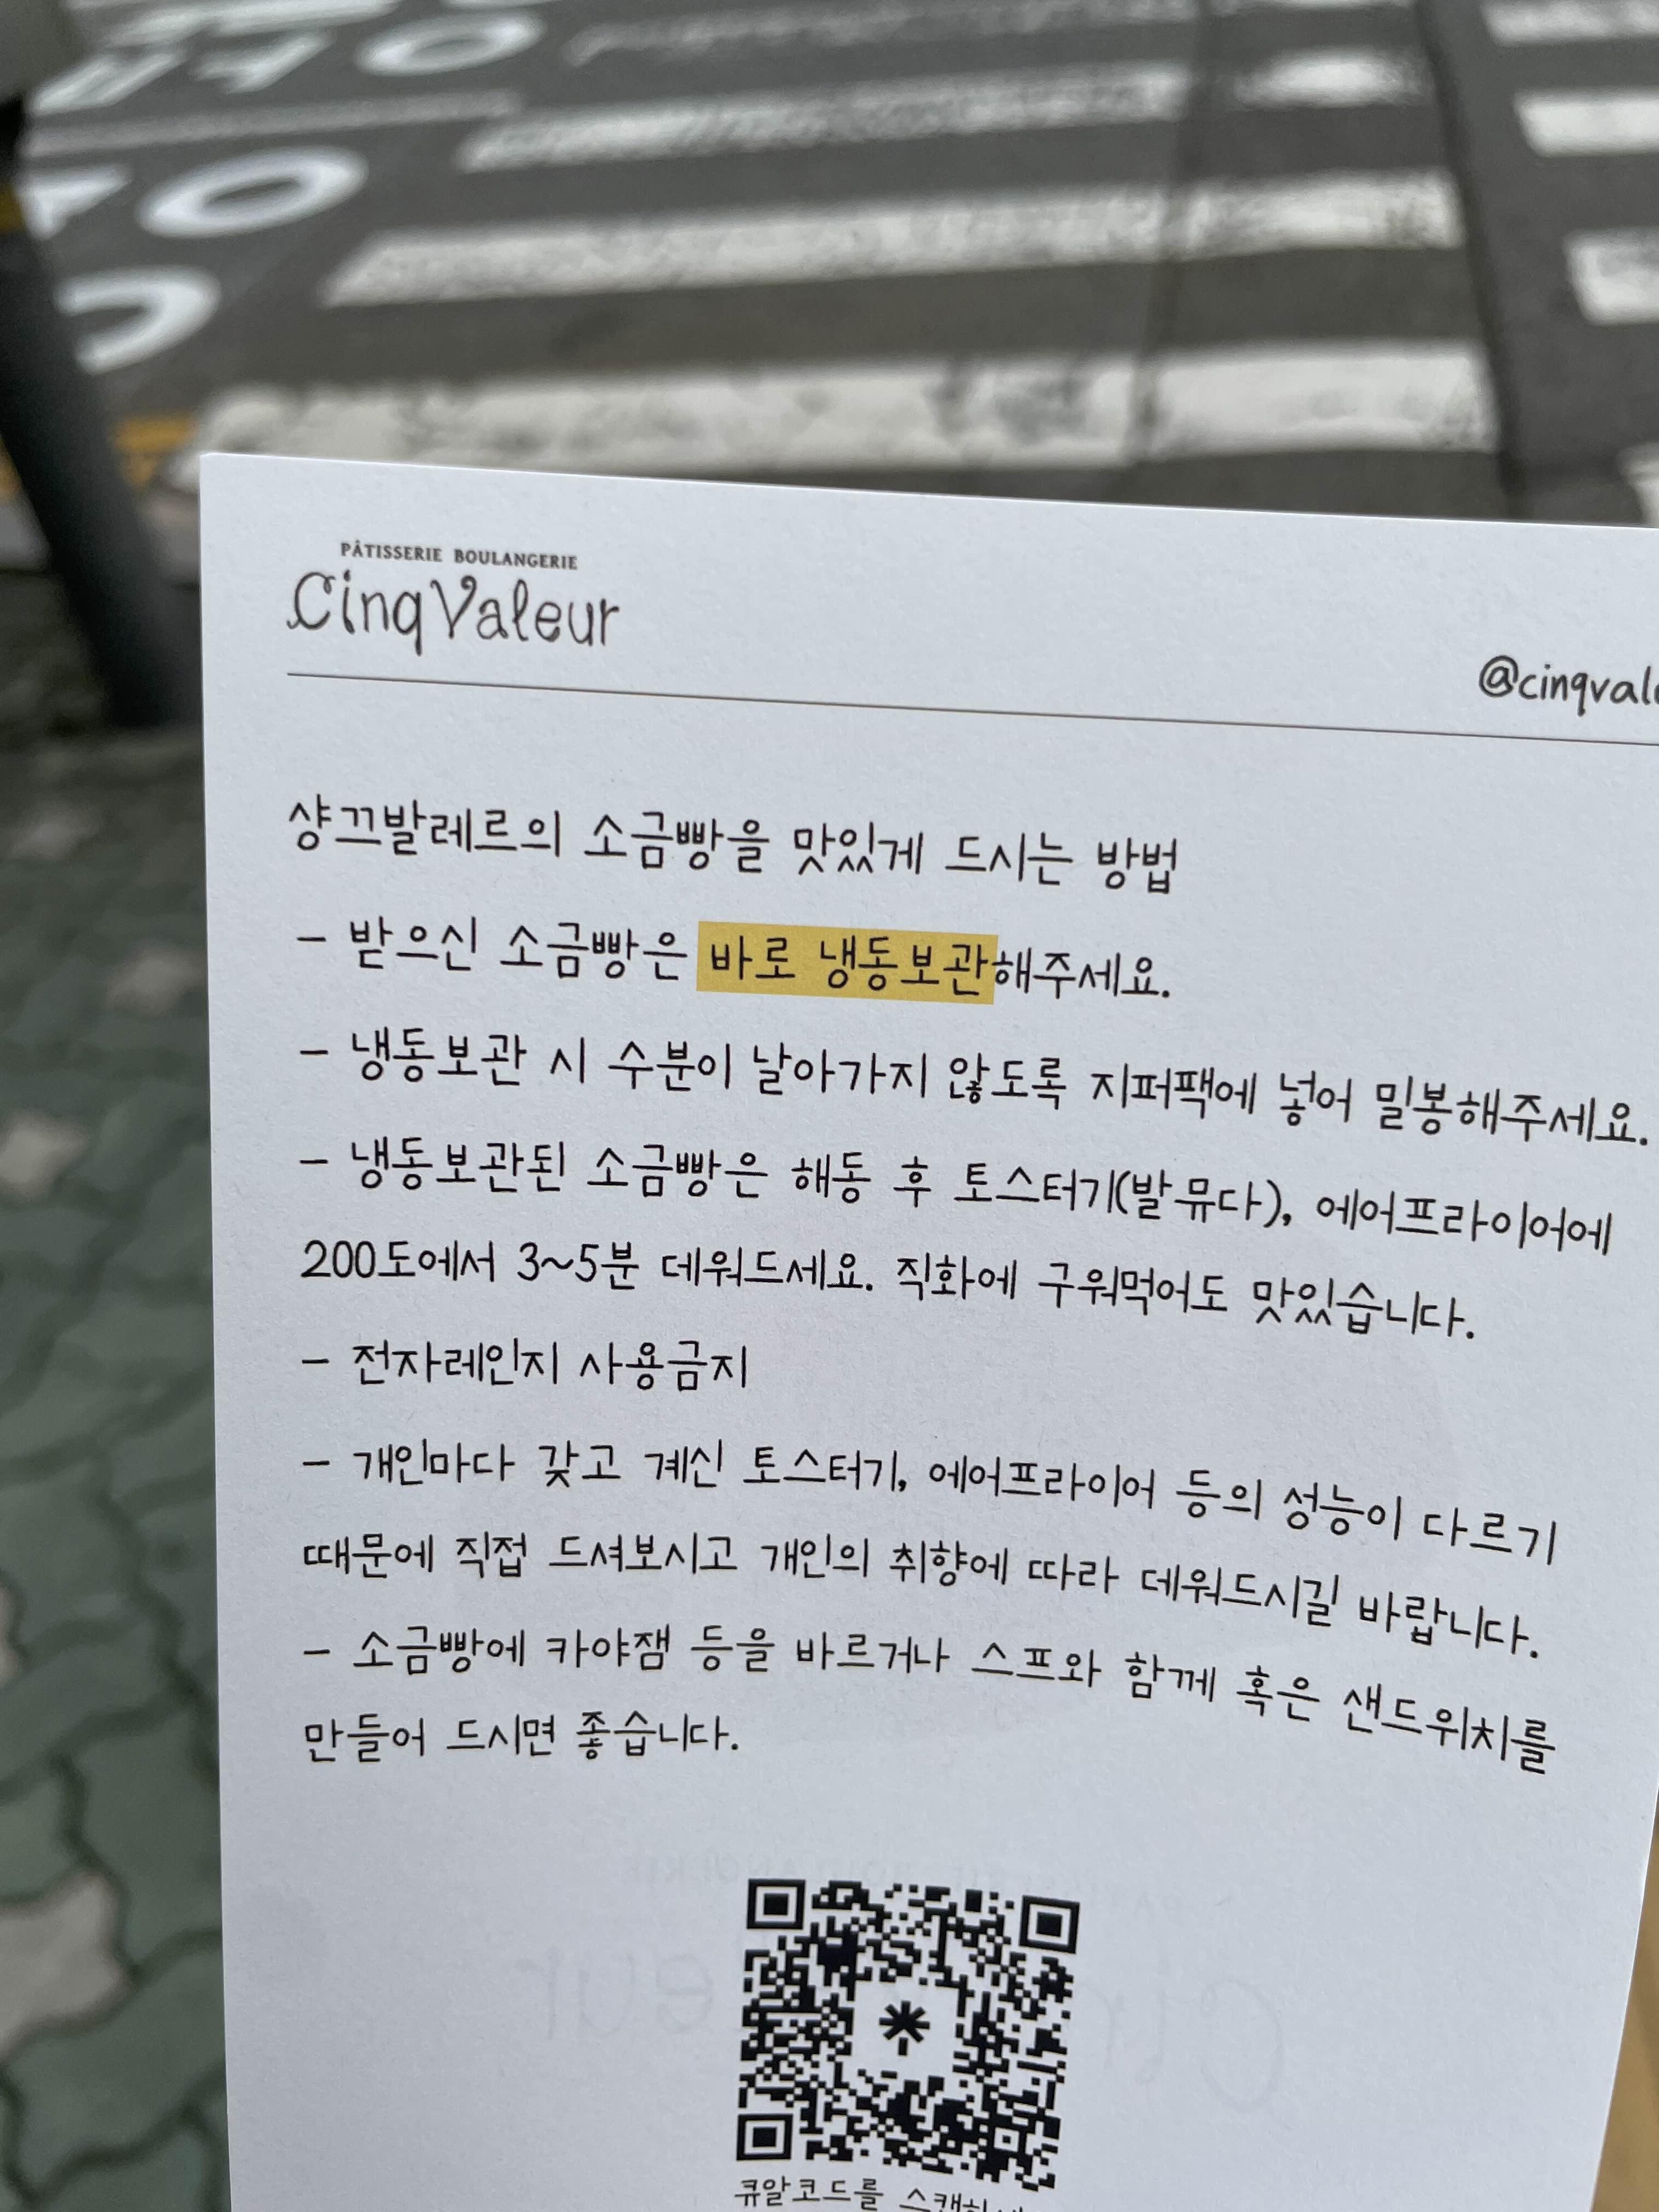 PÂTISSERIE BOULANGERIE
Cinq Valeur
@cinqval
샹끄발레르의 소금빵을 맛있게 드시는 방법
- 받으신 소금빵은 바로 냉동보관해주세요.
- 냉동보관 시 수분이 날아가지 않도록 지퍼팩에 넣어 밀봉해주세요.
- 냉동보관된 소금빵은 해동 후 토스터기(발뮤다), 에어프라이어에
200도에서 3~5분 데워드세요. 직화에 구워먹어도 맛있습니다.
- 전자레인지 사용금지
- 개인마다 갖고 계신 토스터기, 에어프라이어 등의 성능이 다르기
때문에 직접 드셔보시고 개인의 취향에 따라 데워드시길 바랍니다.
- 소금빵에 카야잼 등을 바르거나 스프와 함께 혹은 샌드위치를
만들어 드시면 좋습니다.
큐알코드를